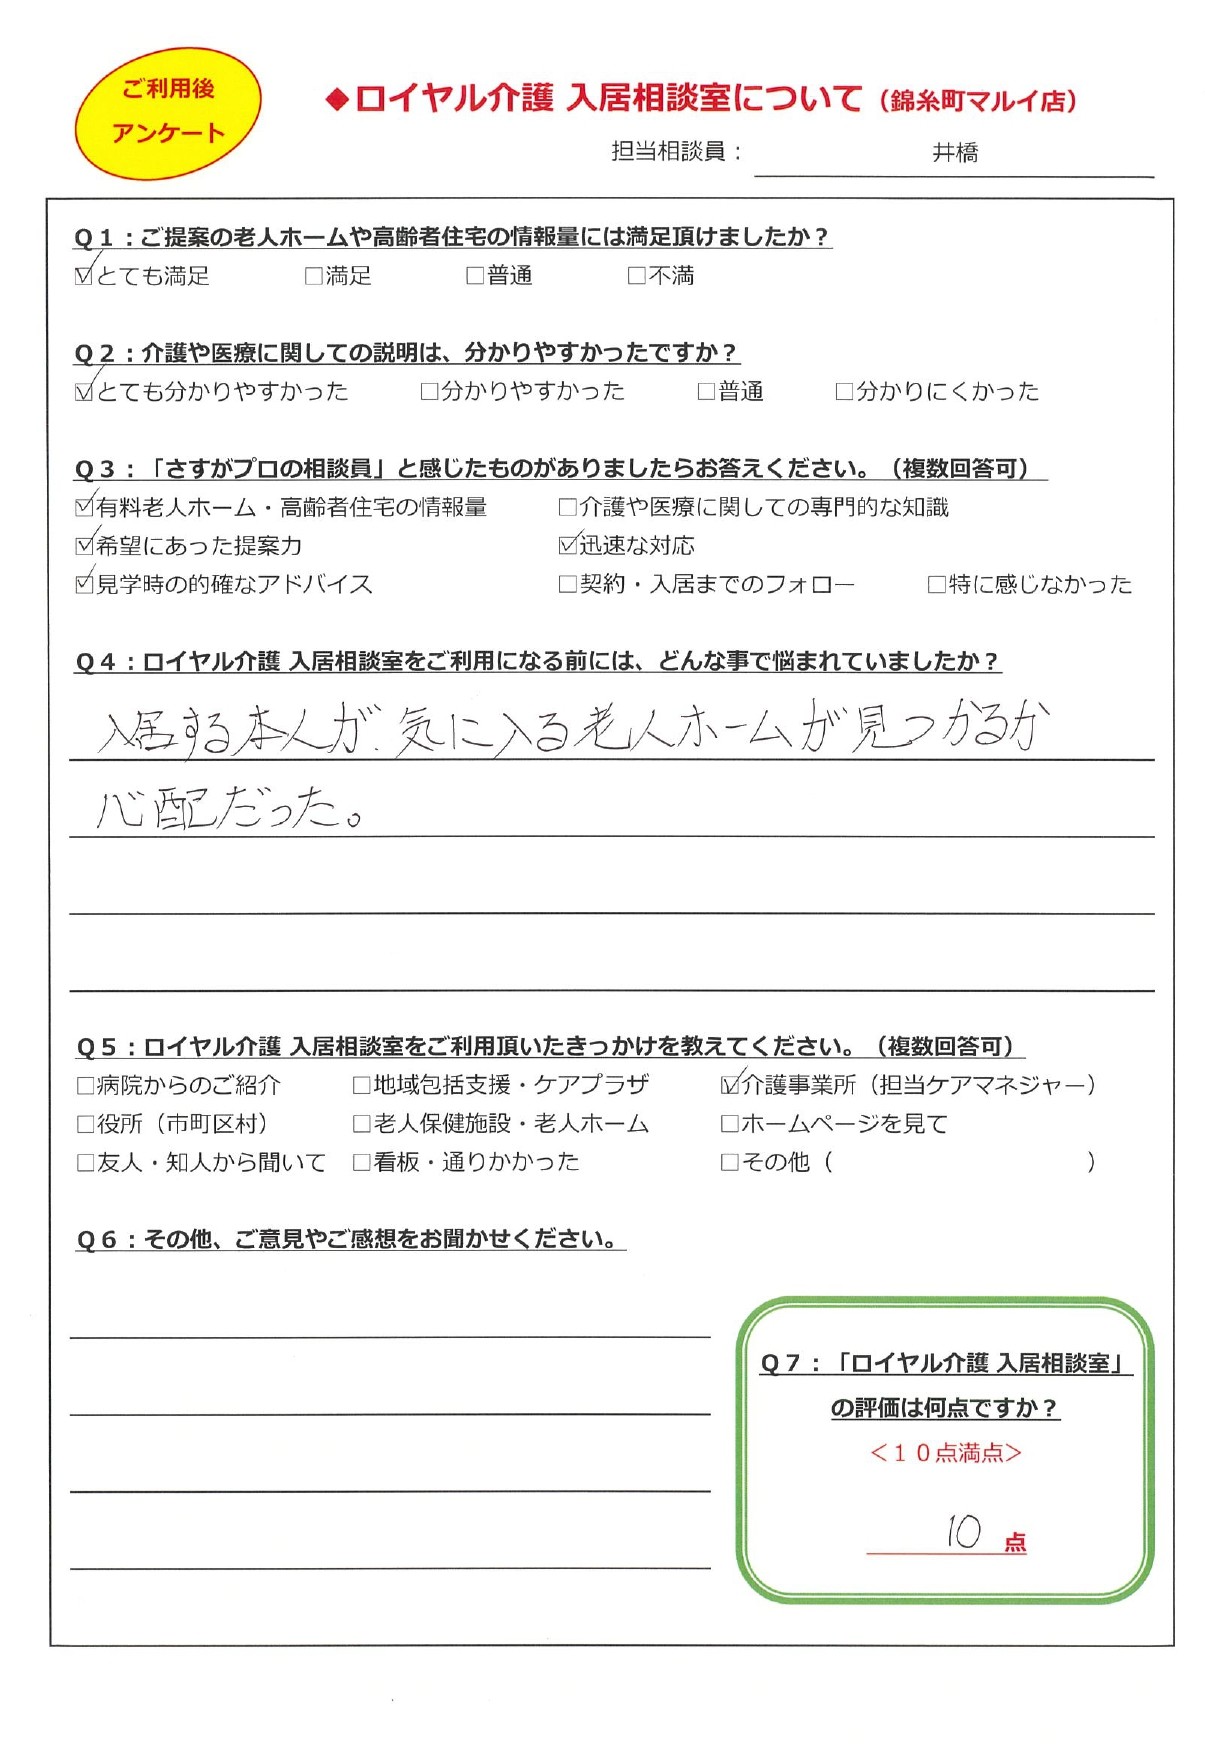 ご利用後
アンケート
◆ロイヤル介護 入居相談室について（錦糸町マルイ店）
担当相談員： 井橋
Q１：ご提案の老人ホームや高齢者住宅の情報量には満足頂けましたか？
☑とても満足 □満足 □普通 □不満
Q２：介護や医療に関しての説明は、分かりやすかったですか？
☑とても分かりやすかった □分かりやすかった □普通 □分かりにくかった
Q３：「さすがプロの相談員」と感じたものがありましたらお答えください。（複数回答可）
☑有料老人ホーム・高齢者住宅の情報量 □介護や医療に関しての専門的な知識
☑希望にあった提案力 ☑迅速な対応
☑見学時の的確なアドバイス □契約・入居までのフォロー □特に感じなかった
Q４：ロイヤル介護 入居相談室をご利用になる前には、どんな事で悩まれていましたか？
入居する本人が、気に入る老人ホームが見つかるか
心配だった。
Q５：ロイヤル介護 入居相談室をご利用頂いたきっかけを教えてください。（複数回答可）
□病院からのご紹介 □地域包括支援・ケアプラザ ☑介護事業所（担当ケアマネジャー）
□役所（市町区村） □老人保健施設・老人ホーム □ホームページを見て
□友人・知人から聞いて □看板・通りかかった □その他（ ）
Q６：その他、ご意見やご感想をお聞かせください。
Q７：「ロイヤル介護 入居相談室」
の評価は何点ですか？
＜１０点満点＞
10 点